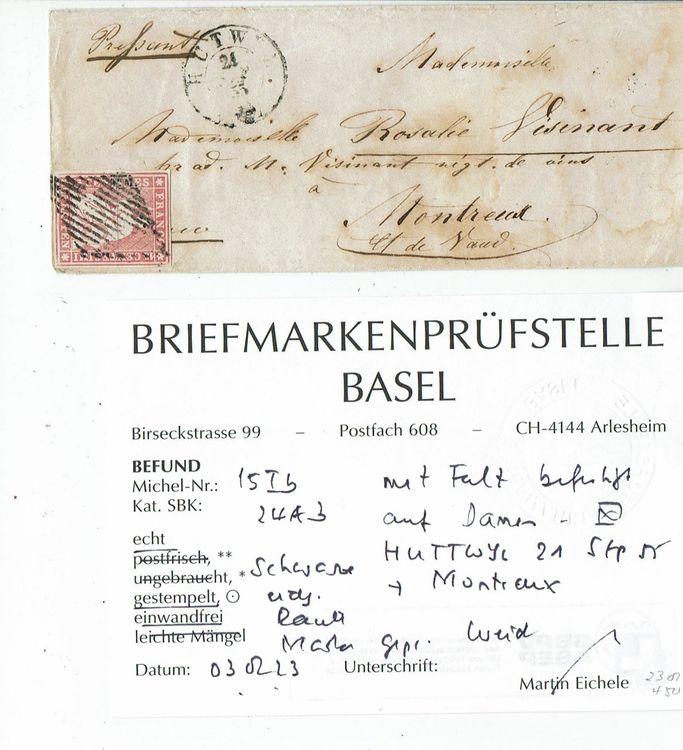 Pressant
HUTWYL
21
Mademoiselle
Mademoiselle Rosalie Visinant
M. Visinant négt. de vins
à
Montreux.
Ct de Vaud.
FRANCO
BRIEFMARKENPRÜFSTELLE
BASEL
Birseckstrasse 99 – Postfach 608 – CH-4144 Arlesheim
BEFUND
Michel-Nr.: 15 II b mit Falt
Kat. SBK: 24A3 auf Damen-
echt HUTTWYL 21 Sep 55
postfrisch, ** → Montreux
ungebraucht, * Schwarze
gestempelt, ⊙ eidg.
einwandfrei Raute
leichte Mängel gepr. Weid
Datum: 03 02 23 Unterschrift:
Martin Eichele
450